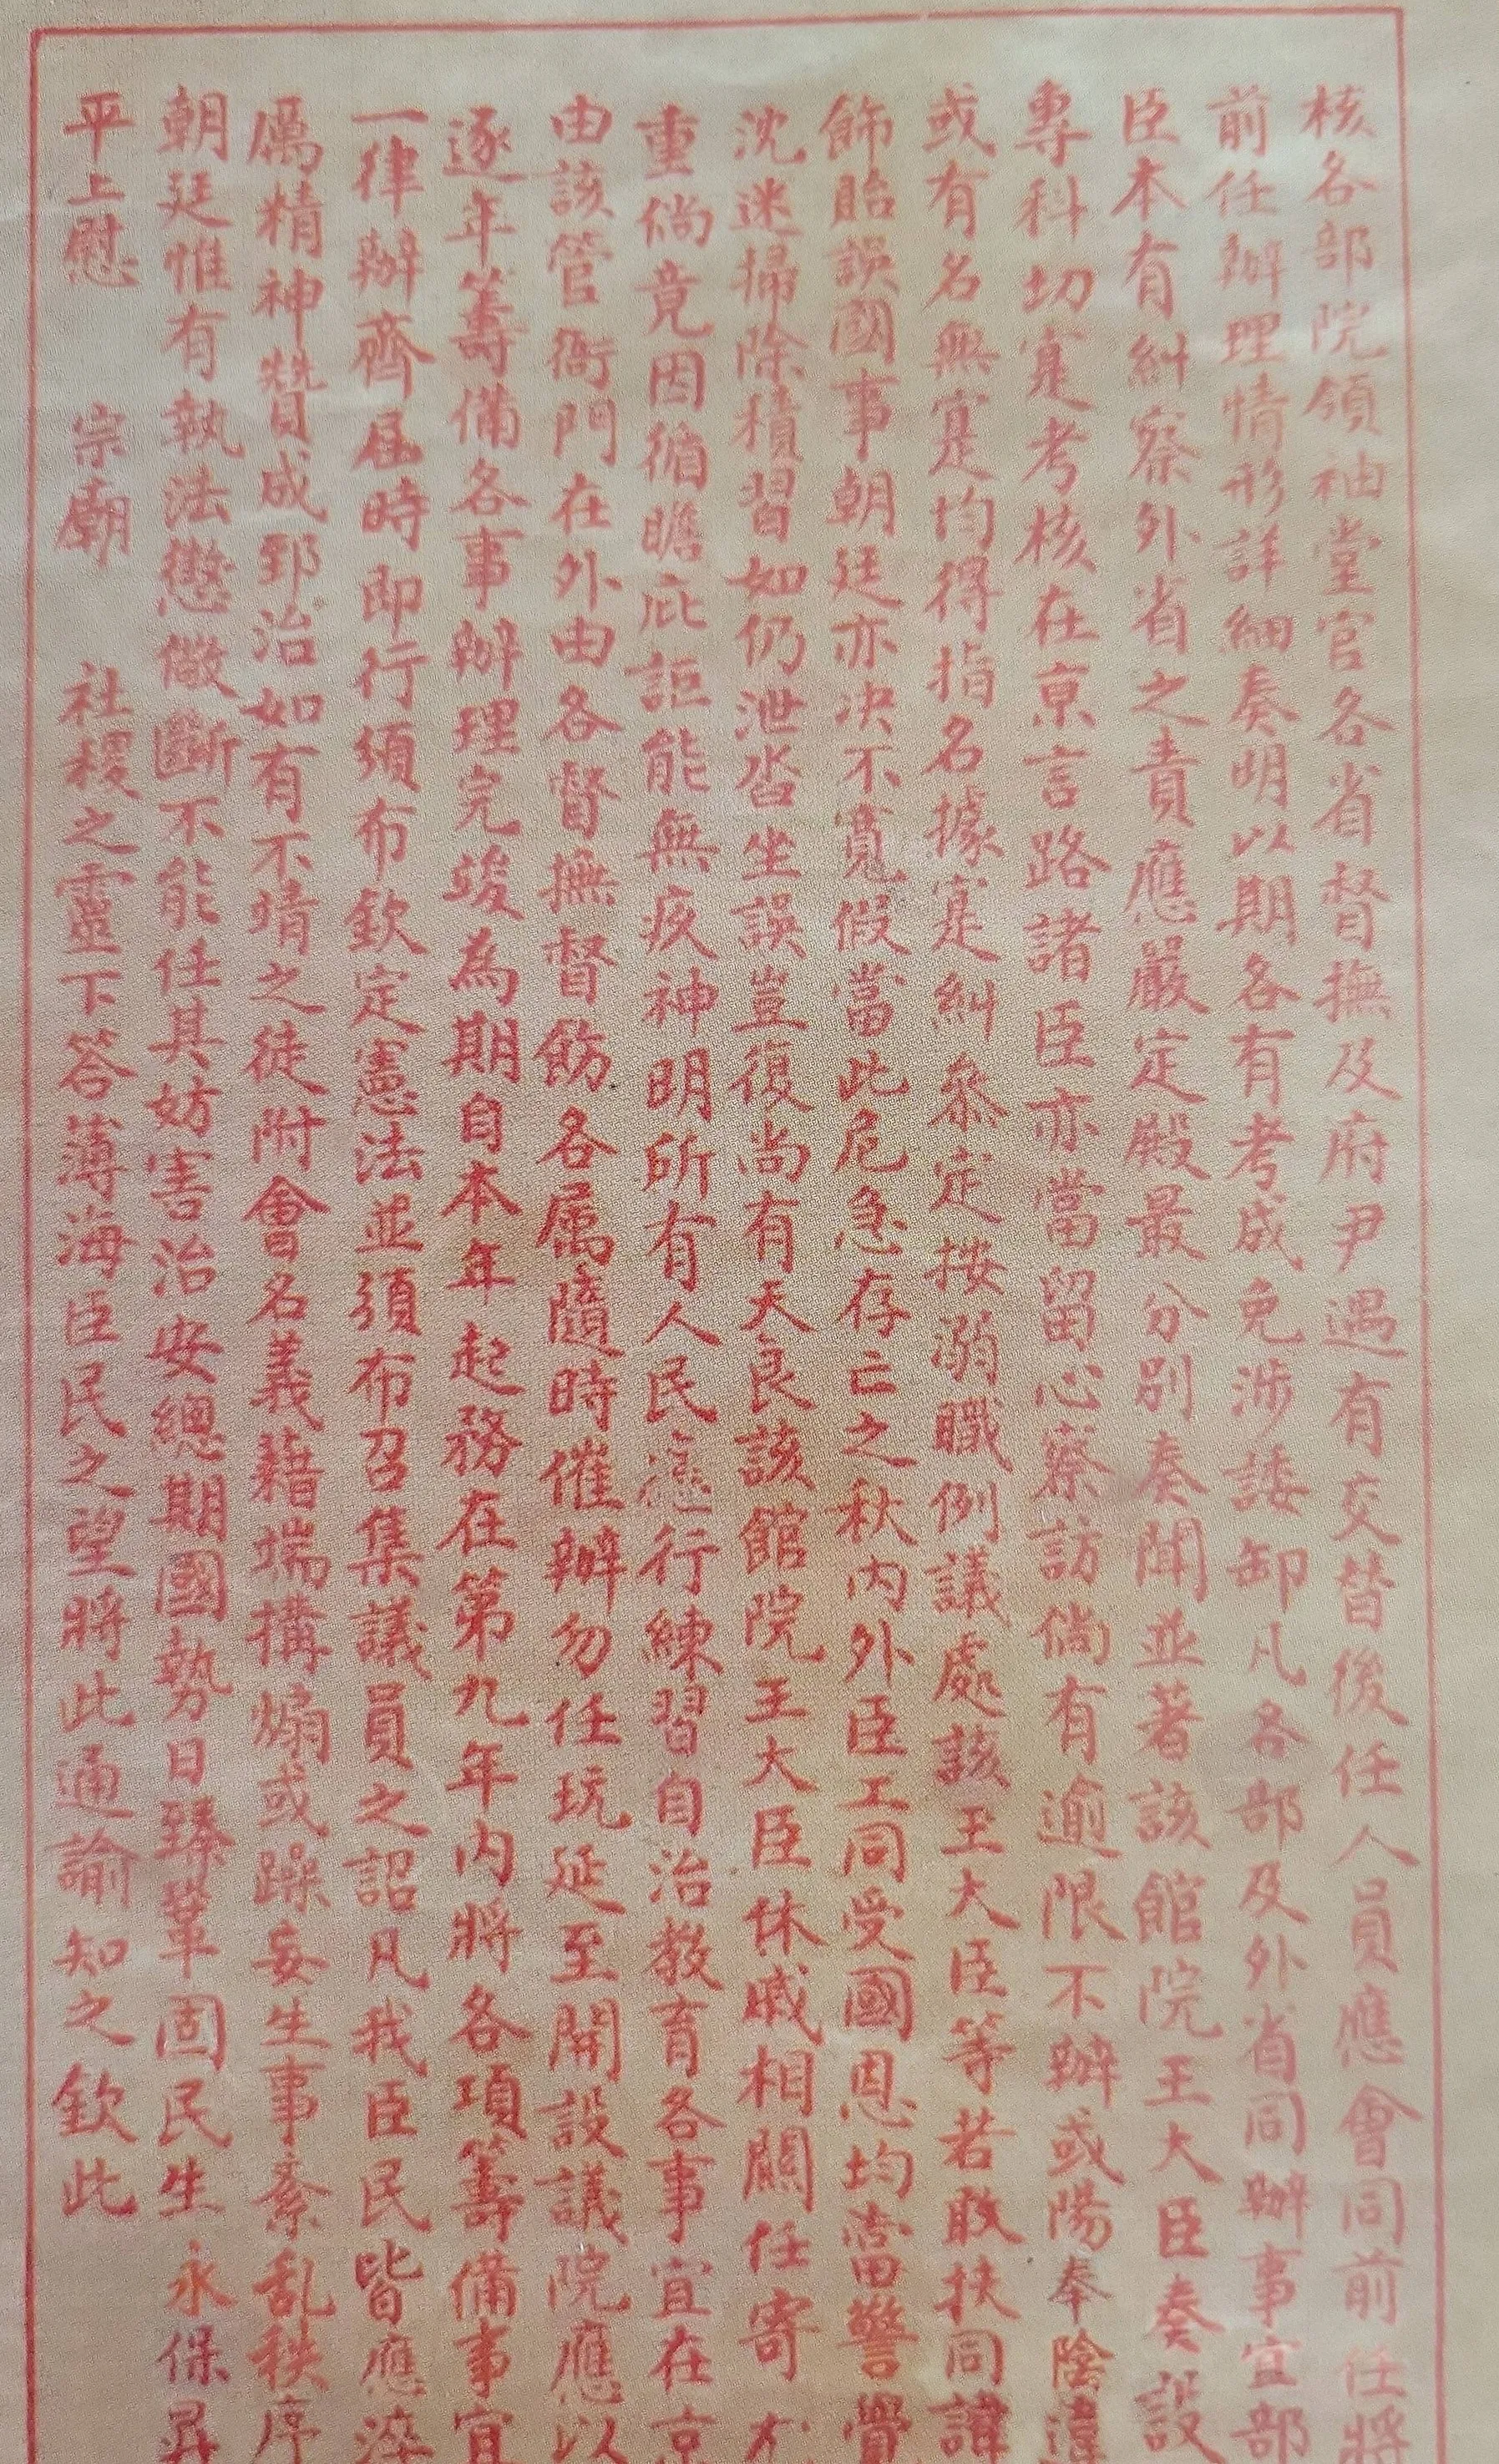 核各部院領袖堂官各省督撫及府尹遇有交替後任人員應會同前任將
前任辦理情形詳細奏明以期各有考成免涉諉卸凡各部及外省同辦事宜部
臣本有糾察外省之責應嚴定殿最分別奏聞並著該館院王大臣奏設
專科切寔考核在京言路諸臣亦當留心察訪倘有逾限不辦或陽奉陰違
或有名無寔均得指名據寔糾叅定按溺職例議處該王大臣等若敢扶同諱
飾貽誤國事朝廷亦决不寬假當此危急存亡之秋内外臣工同受國恩均當警覺
沈迷掃除積習如仍泄沓坐誤豈復尚有天良該館院王大臣休戚相關任寄尤
重倘竟因循瞻庇詎能無疚神明所有人民應行練習自治教育各事宜在京
由該管衙門在外由各督撫督飭各属隨時催辦勿任玩延至開設議院應以
逐年籌備各事辦理完竣為期自本年起務在第九年内將各項籌備事宜
一律辦齊届時即行頒布欽定憲法並頒布召集議員之詔凡我臣民皆應淬
厲精神贊成郅治如有不靖之徒附會名義藉端搆煽或躁妄生事紊乱秩序
朝廷惟有執法懲儆斷不能任其妨害治安總期國勢日臻鞏固民生永保昇
平上慰 宗廟 社稷之靈下答薄海臣民之望將此通諭知之欽此